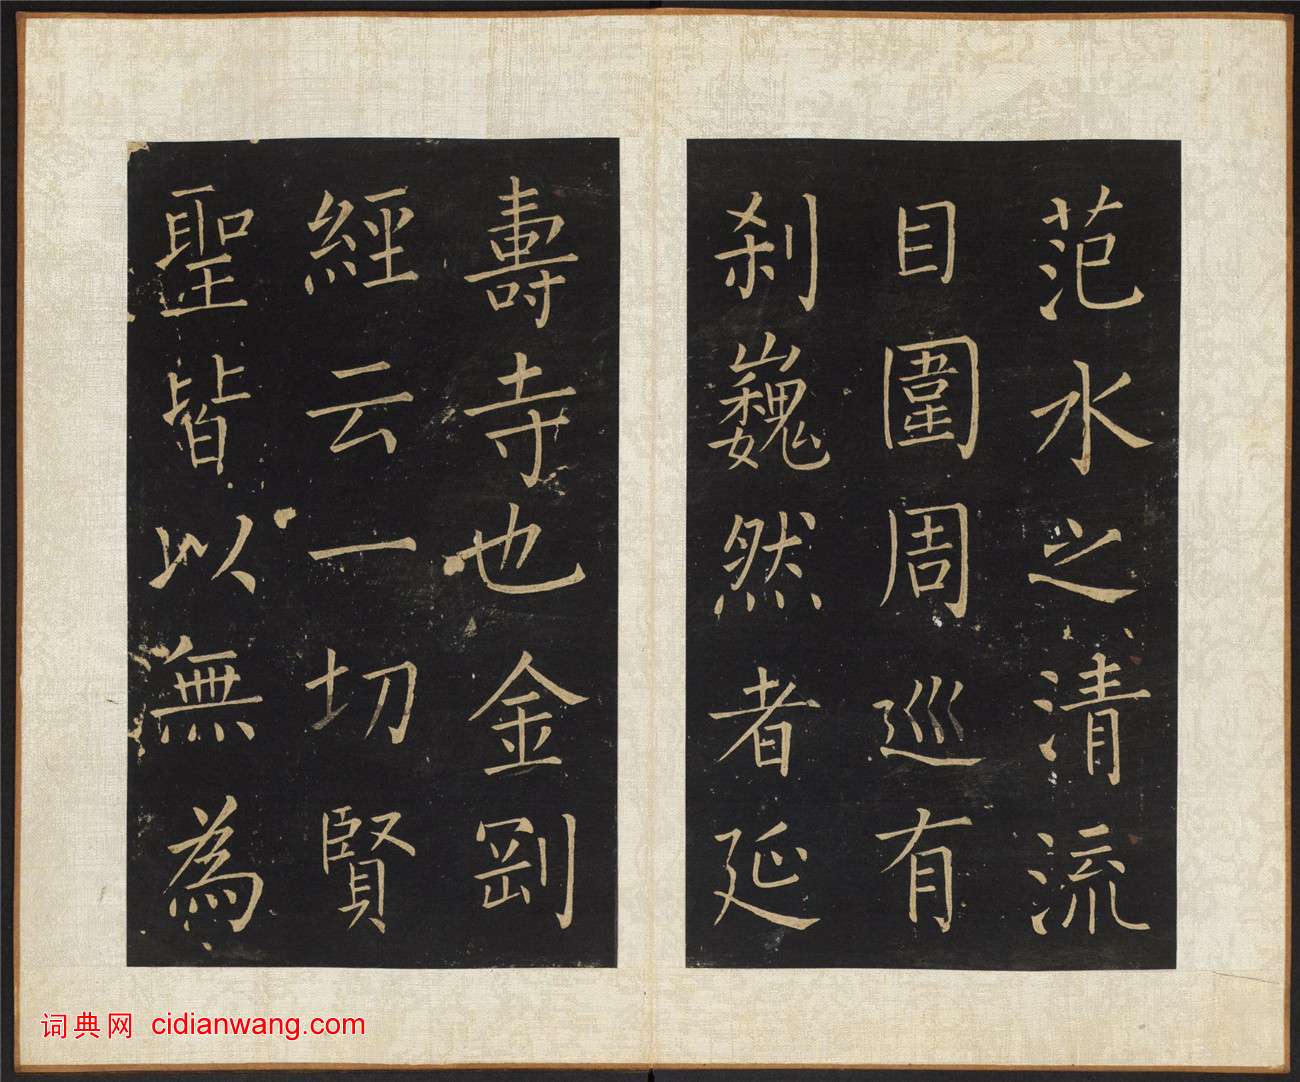 范水之清流
目圍周巡有
刹巍然者延
壽寺也金剛
經云一切賢
聖皆以無為
词典网 cidianwang.com